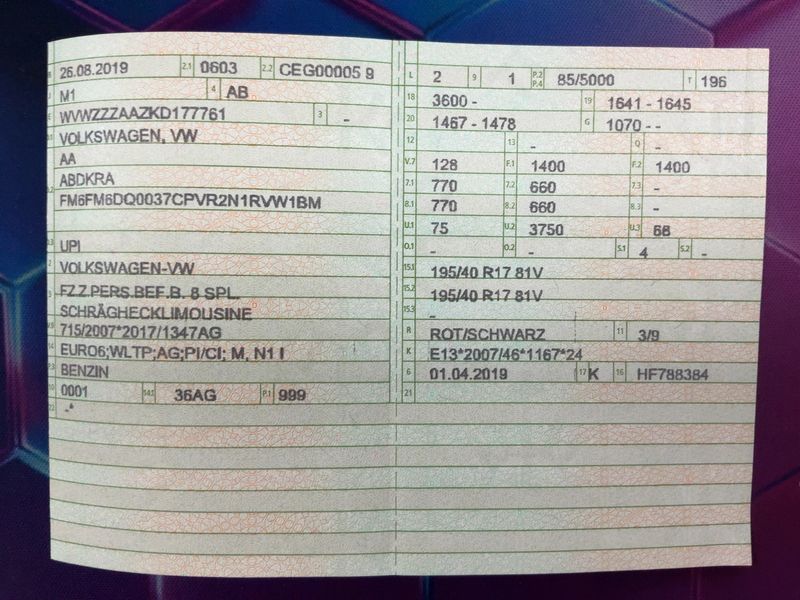 B 26.08.2019 2.1 0603 2.2 CEG00005 9
J M1 4 AB
E WVWZZZAAZKD177761 3 -
VOLKSWAGEN, VW
AA
ABDKRA
FM6FM6DQ0037CPVR2N1RVW1BM
UPI
VOLKSWAGEN-VW
FZ.Z.PERS.BEF.B. 8 SPL.
SCHRÄGHECKLIMOUSINE
715/2007*2017/1347AG
14 EURO6;WLTP;AG;PI/CI; M, N1 I
P.3 BENZIN
10 0001 14.1 36AG P.1 999
22 -*
L 2 9 1 P.2 P.4 85/5000 T 196
18 3600 - 19 1641 - 1645
20 1467 - 1478 G 1070 - -
12 - 13 - Q -
V.7 128 F.1 1400 F.2 1400
7.1 770 7.2 660 7.3 -
8.1 770 8.2 660 8.3 -
U.1 75 U.2 3750 U.3 68
O.1 - O.2 - S.1 4 S.2 -
15.1 195/40 R17 81V
15.2 195/40 R17 81V
15.3 -
R ROT/SCHWARZ 11 3/9
K E13*2007/46*1167*24
6 01.04.2019 17 K 16 HF788384
21